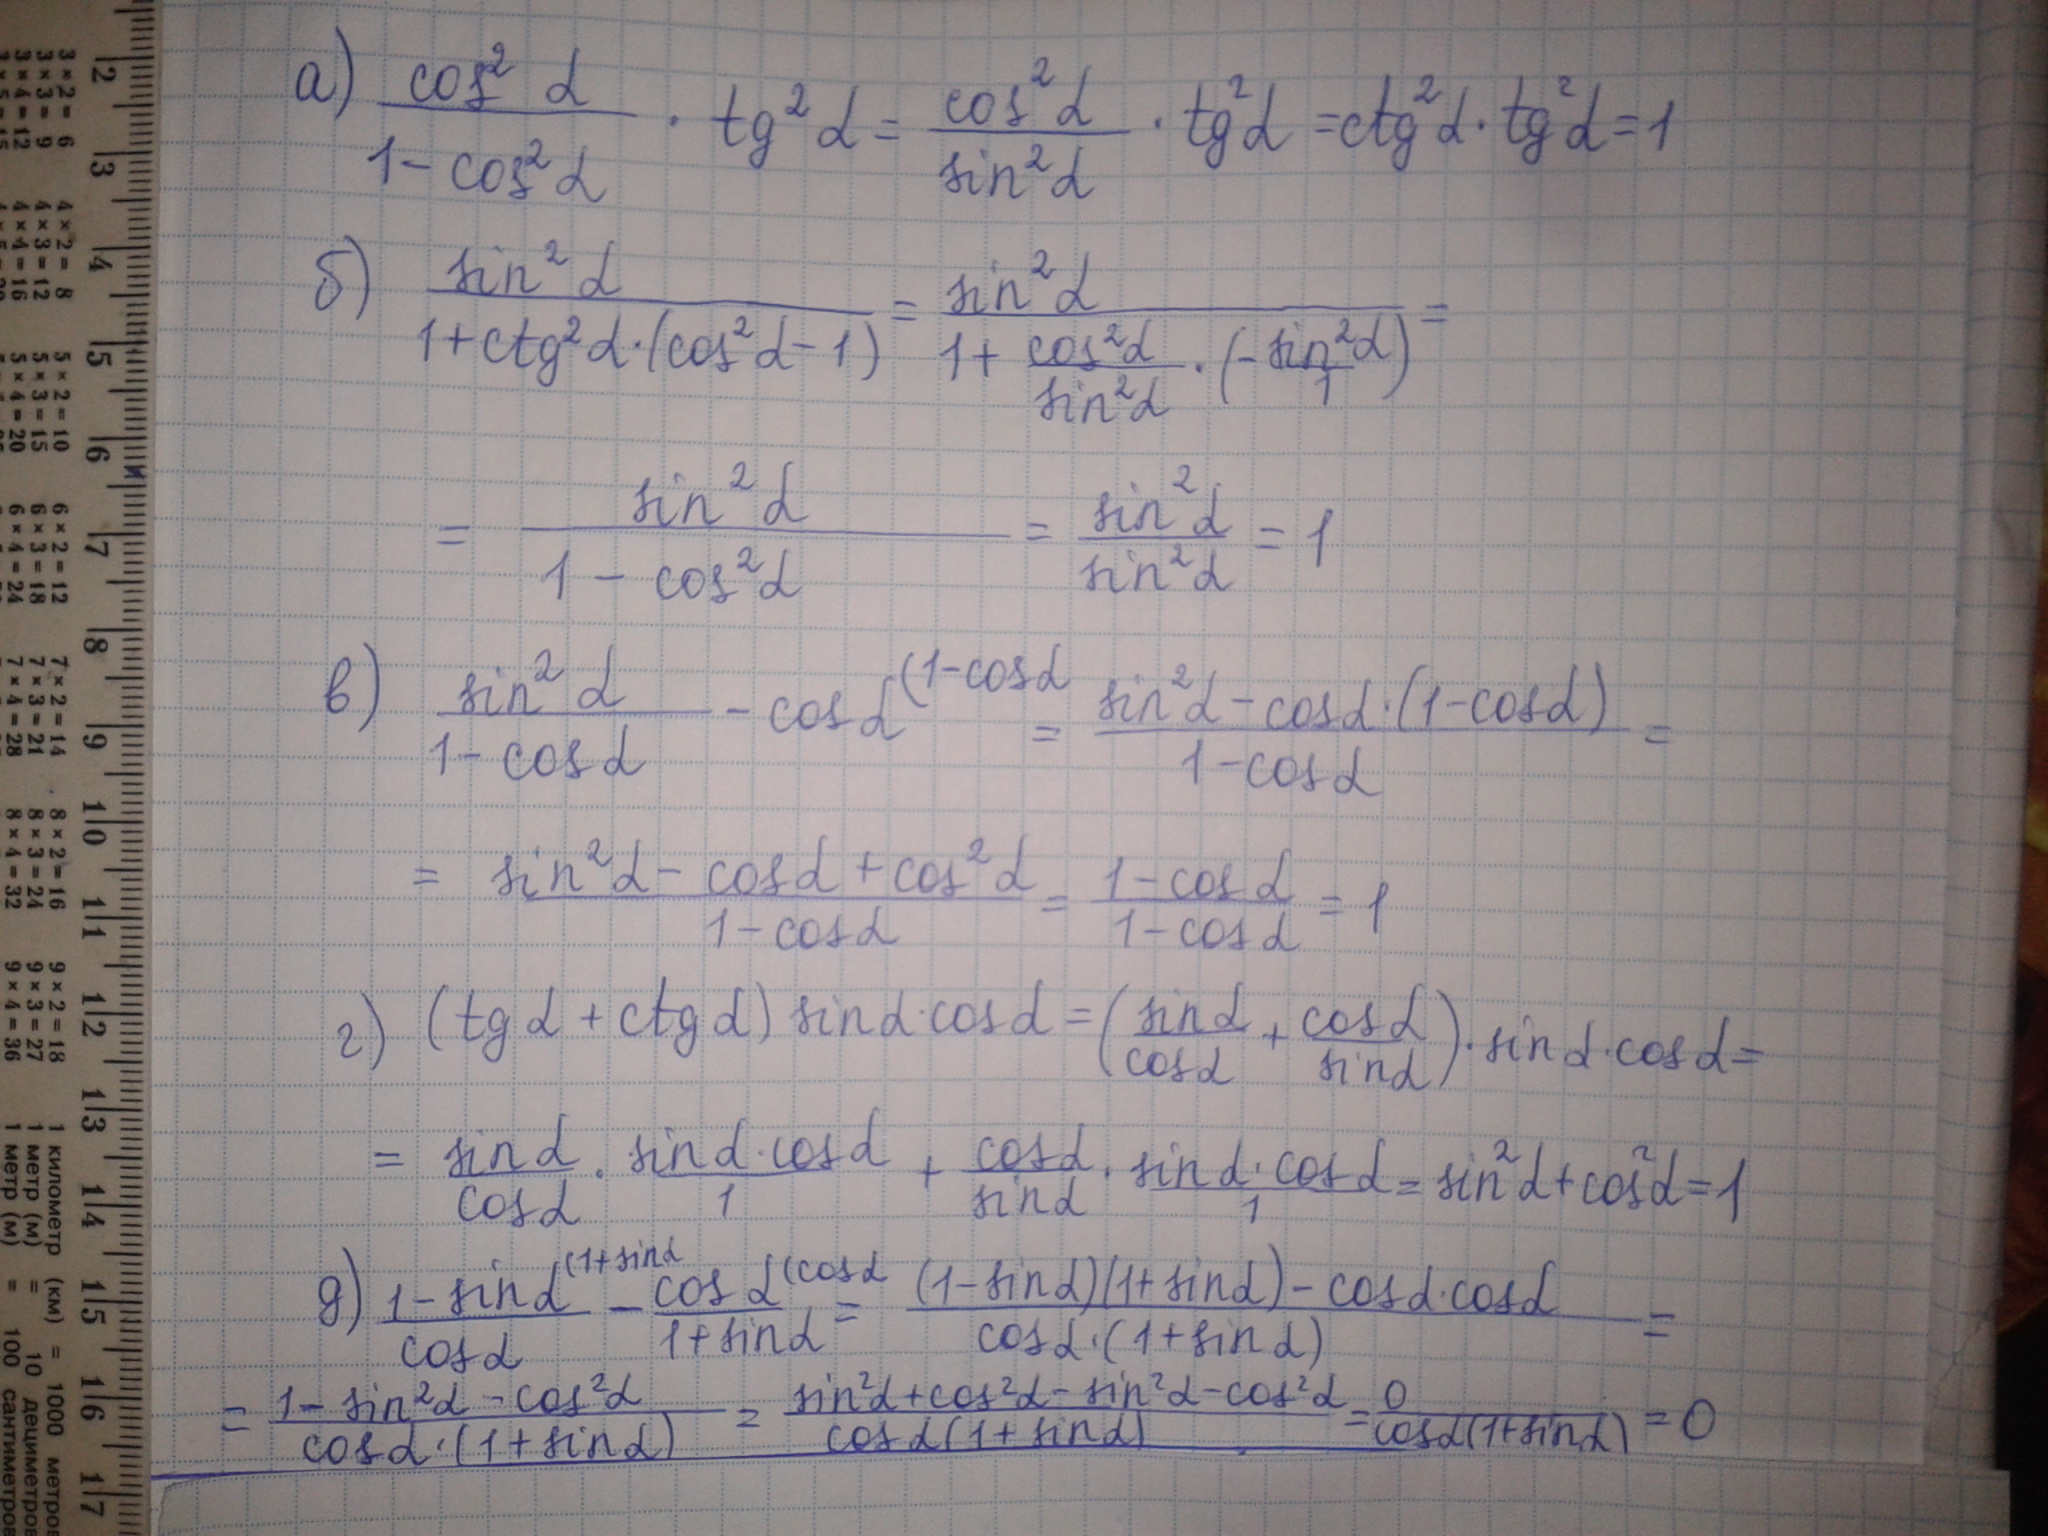 а) cos² α / (1 – cos² α) · tg² α = cos² α / sin² α · tg² α = ctg² α · tg² α = 1
б) sin² α / (1 + ctg² α · (cos² α – 1)) = sin² α / (1 + cos² α / sin² α · (– sin² α / 1)) =
= sin² α / (1 – cos² α) = sin² α / sin² α = 1
в) sin² α / (1 – cos α) – cos α (1 – cos α = (sin² α – cos α · (1 – cos α)) / (1 – cos α) =
= (sin² α – cos α + cos² α) / (1 – cos α) = (1 – cos α) / (1 – cos α) = 1
г) (tg α + ctg α) sin α · cos α = (sin α / cos α + cos α / sin α) · sin α · cos α =
= sin α / cos α · sin α · cos α / 1 + cos α / sin α · sin α · cos α / 1 = sin² α + cos² α = 1
д) 1 – sin α (1 + sin α / cos α – cos α (cos α / 1 + sin α = ((1 – sin α)(1 + sin α) – cos α · cos α) / (cos α · (1 + sin α)) =
= (1 – sin² α – cos² α) / (cos α · (1 + sin α)) = (sin² α + cos² α – sin² α – cos² α) / (cos α (1 + sin α)) = 0 / (cos α (1 + sin α)) = 0
2 3 4 5 6 7 8 9 10 11 12 13 14 15 16 17
3 × 2 = 6
3 × 3 = 9
3 × 4 = 12
4 × 2 = 8
4 × 3 = 12
4 × 4 = 16
5 × 2 = 10
5 × 3 = 15
5 × 4 = 20
6 × 2 = 12
6 × 3 = 18
6 × 4 = 24
7 × 2 = 14
7 × 3 = 21
7 × 4 = 28
8 × 2 = 16
8 × 3 = 24
8 × 4 = 32
9 × 2 = 18
9 × 3 = 27
9 × 4 = 36
1 километр (км) = 1000 метров
1 метр (м) = 10 дециметров
1 метр (м) = 100 сантиметров